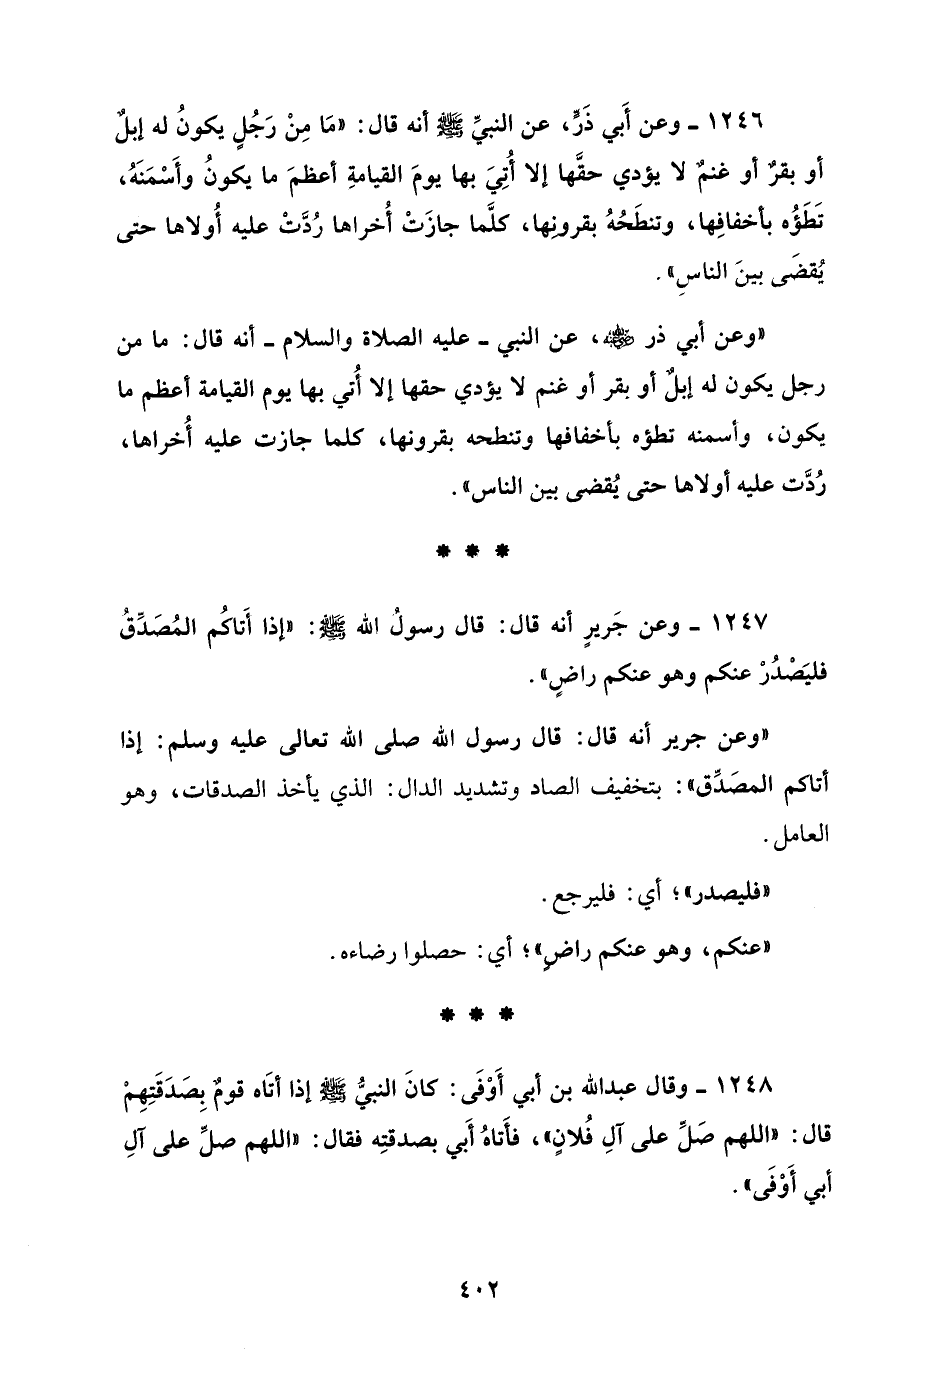 ١٢٤٦ ـ وعن أَبي ذَرٍّ، عن النبيِّ ﷺ أنه قال: «مَا مِنْ رَجُلٍ يكونُ له إبلٌ
أو بقرٌ أو غنمٌ لا يؤدي حقَّها إلا أُتِيَ بها يومَ القيامةِ أعظمَ ما يكونُ وأَسْمَنَهُ،
تَطَؤُه بأخفافِها، وتنطَحُهُ بقرونِها، كلَّما جازَتْ أُخراها رُدَّتْ عليه أُولاها حتى
يُقضَى بينَ الناسِ».
«وعن أبي ذر ﷺ، عن النبي ـ عليه الصلاة والسلام ـ أنه قال: ما من
رجل يكون له إبلٌ أو بقر أو غنم لا يؤدي حقها إلا أُتي بها يوم القيامة أعظم ما
يكون، وأسمنه تطؤه بأخفافها وتنطحه بقرونها، كلما جازت عليه أُخراها،
رُدَّت عليه أولاها حتى يُقضى بين الناس».
* * *
١٢٤٧ ـ وعن جَريرٍ أنه قال: قال رسولُ الله ﷺ: «إذا أَتاكُم المُصَدِّقُ
فليَصْدُرْ عنكم وهو عنكم راضٍ».
«وعن جرير أنه قال: قال رسول الله صلى الله تعالى عليه وسلم: إذا
أتاكم المصَدِّق»: بتخفيف الصاد وتشديد الدال: الذي يأخذ الصدقات، وهو
العامل.
«فليصدر»؛ أي: فليرجع.
«عنكم، وهو عنكم راضٍ»؛ أي: حصلوا رضاءه.
* * *
١٢٤٨ ـ وقال عبدالله بن أبي أَوْفَى: كانَ النبيُّ ﷺ إذا أتَاه قومٌ بِصَدَقَتِهِمْ
قال: «اللهم صَلِّ على آلِ فُلانٍ»، فأَتاهُ أَبي بصدقتِه فقال: «اللهم صلِّ على آلِ
أبي أَوْفَى».
٤٠٢